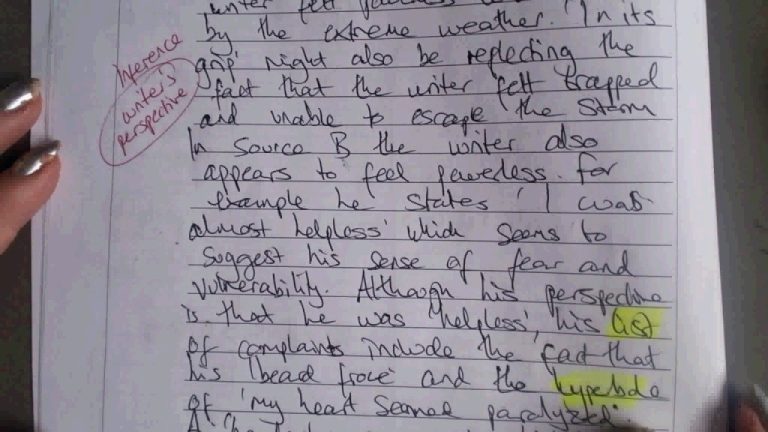 writer felt
by the extreme weather. 'In its
grip' might also be reflecting the
fact that the writer felt trapped
and unable to escape the storm
Inference
writer's
perspective
In Source B the writer also
appears to feel powerless. For
example he states 'I was
almost helpless' which seems to
suggest his sense of fear and
vulnerability. Although his perspective
is that he was 'helpless', his list
of complaints include the fact that
his 'beard froze' and the hyperbole
of 'my heart seemed paralyzed'.